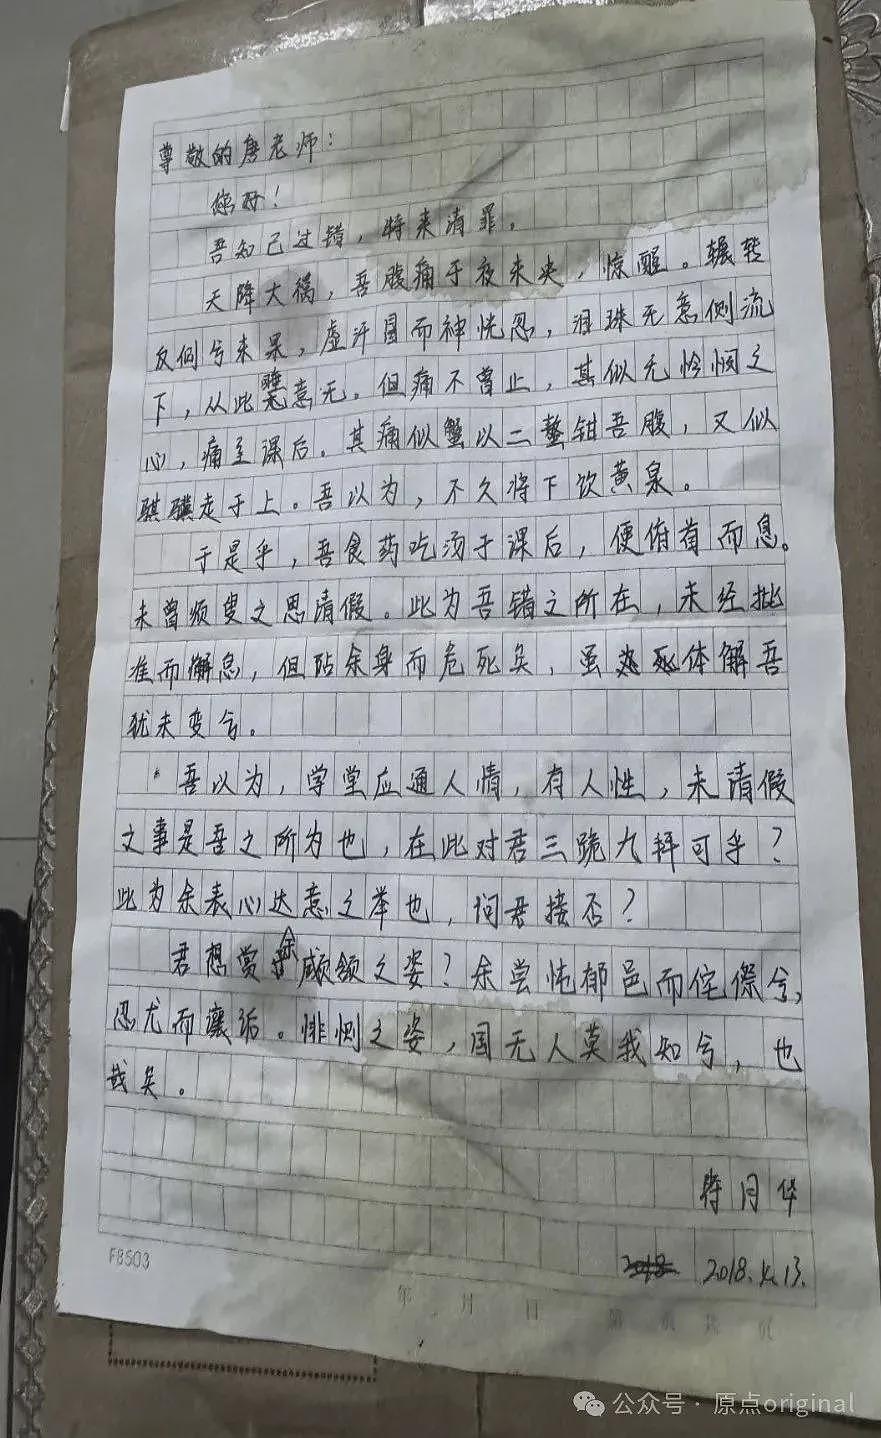 尊敬的唐老师：
您好！
吾知己过错，特来请罪。
天降大祸，吾腹痛于夜未央，惊醒。辗转
反侧兮未果，虚汗冒而神恍忽，泪珠无意侧流
下，从此睡意无。但痛不曾止，其似无怜悯之
心，痛至课后。其痛似蟹以二螯钳吾腹，又似
骐骥走于上。吾以为，不久将下饮黄泉。
于是乎，吾食药吃汤于课后，便俯首而息。
未曾须臾之思请假。此为吾错之所在，未经批
准而懈息，但阽余身而危死矣，虽体解吾
犹未变兮。
吾以为，学堂应通人情，有人性，未请假
之事是吾之所为也，在此对君三跪九拜可乎？
此为余表心达意之举也，问君接否？
君想赏余顑颔之姿？余尝忳郁邑而侘傺兮，
忍尤而攘诟。悱恻之姿，国无人莫我知兮，也
哉矣。
月华
2018.4.13.
F8503
年 月 日 第 页 共 页
公众号·原点original